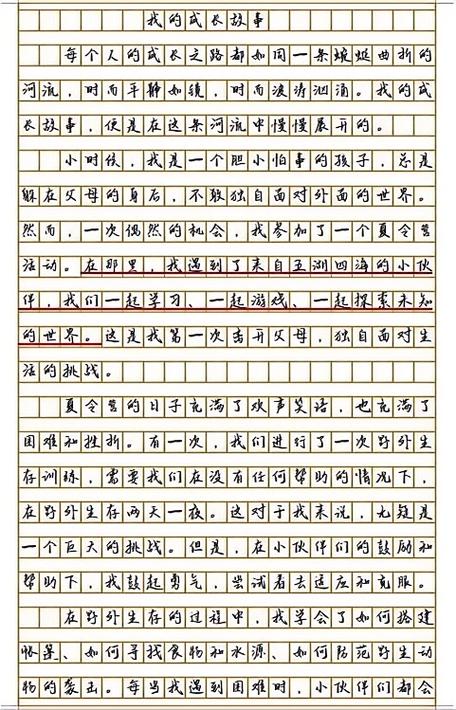 我的成长故事
每个人的成长之路都如同一条蜿蜒曲折的
河流，时而平静如镜，时而波涛汹涌。我的成
长故事，便是在这条河流中慢慢展开的。
小时候，我是一个胆小怕事的孩子，总是
躲在父母的身后，不敢独自面对外面的世界。
然而，一次偶然的机会，我参加了一个夏令营
活动。在那里，我遇到了来自五湖四海的小伙
伴，我们一起学习、一起游戏、一起探索未知
的世界。这是我第一次离开父母，独自面对生
活的挑战。
夏令营的日子充满了欢声笑语，也充满了
困难和挫折。有一次，我们进行了一次野外生
存训练，需要我们在没有任何帮助的情况下，
在野外生存两天一夜。这对于我来说，无疑是
一个巨大的挑战。但是，在小伙伴们的鼓励和
帮助下，我鼓起勇气，尝试着去适应和克服。
在野外生存的过程中，我学会了如何搭建
帐篷、如何寻找食物和水源、如何防范野生动
物的袭击。每当我遇到困难时，小伙伴们都会